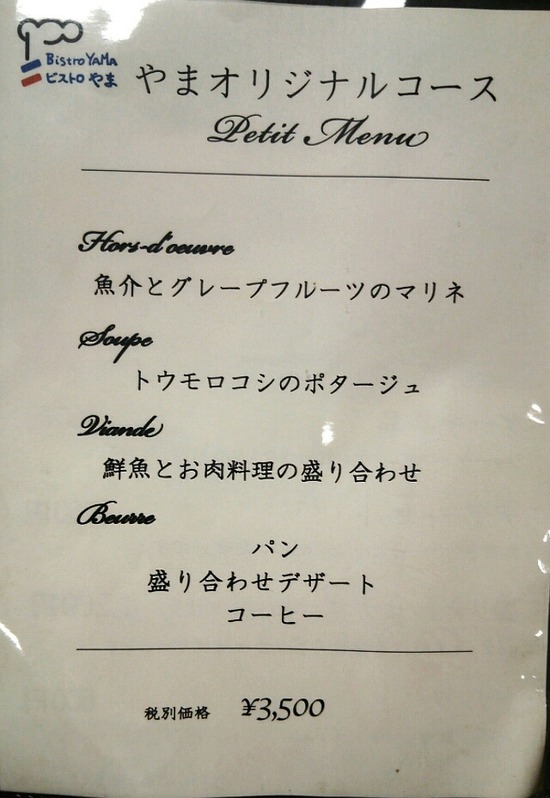 Bistro YAMA
ビストロ やま
やまオリジナルコース
Petit Menu
Hors-d'oeuvre
魚介とグレープフルーツのマリネ
Soupe
トウモロコシのポタージュ
Viande
鮮魚とお肉料理の盛り合わせ
Beurre
パン
盛り合わせデザート
コーヒー
税別価格 ¥3,500